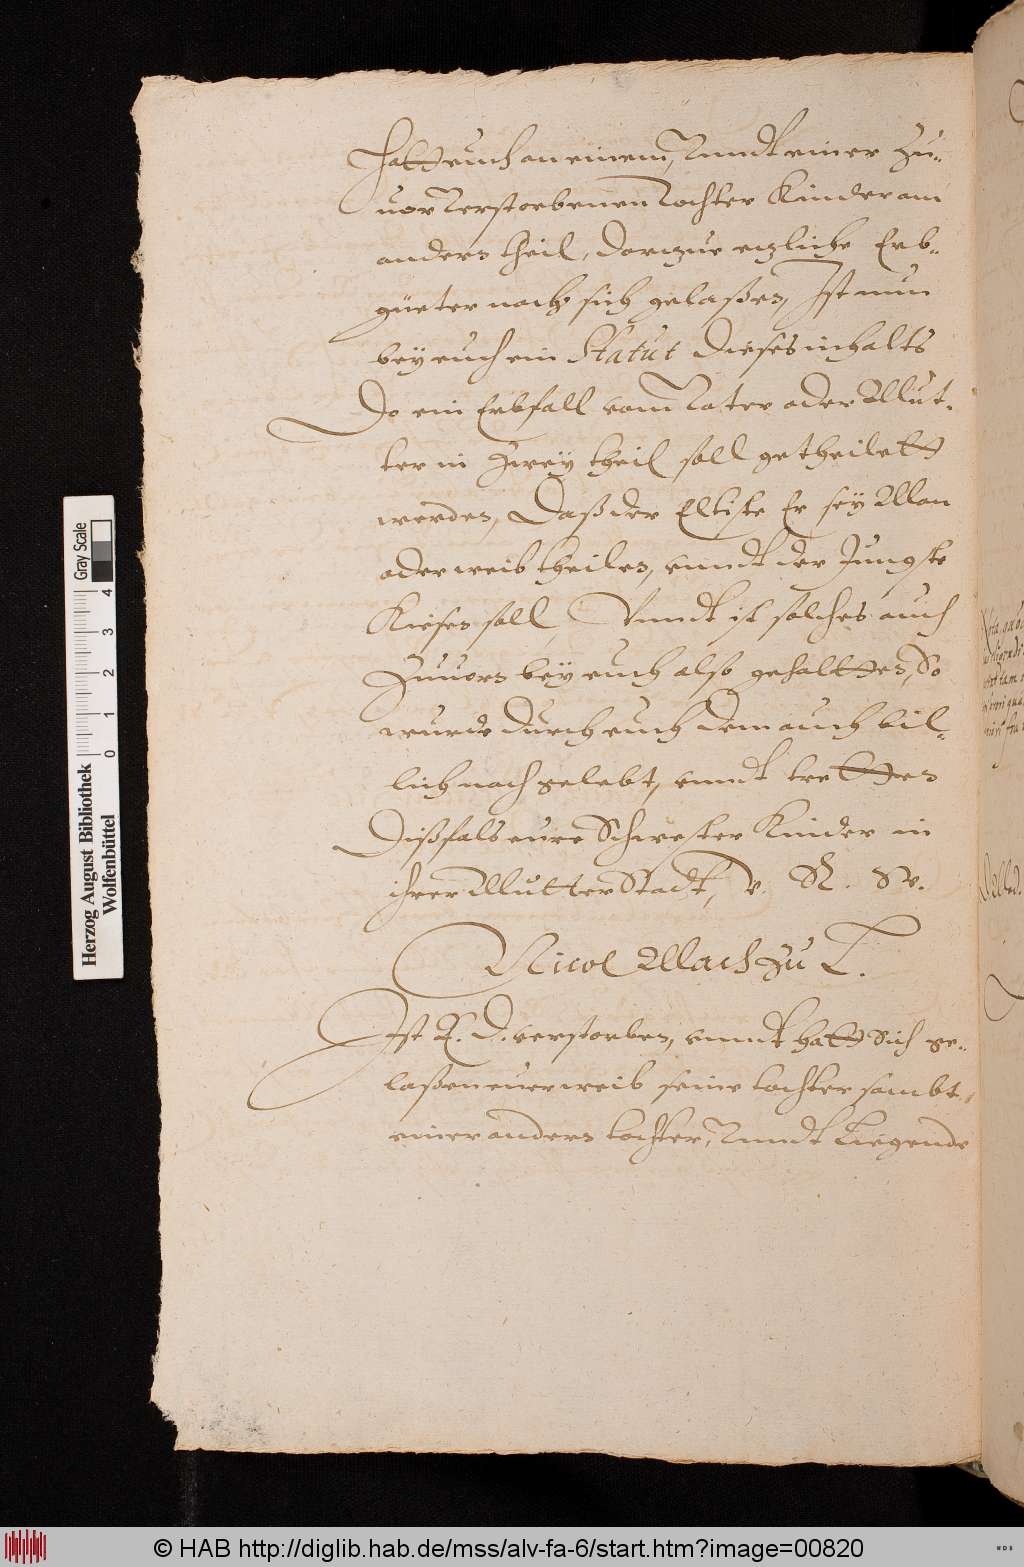 hatt euch an einem, Vnndt einer zu-
uor Verstorbenen Tochter Kinder am
andern theil, darzue etzliche Erb-
güeter nach sich gelaßen, Ist nun
bey euch ein Statut dieses inhalts
Do ein Erbfall vom Vater oder Mut-
ter in zwey theil soll getheilett
werden, Daß der Eltiste Er sey Man
oder weib theilen, vnndt der Jungste
Kiesen soll, Vnndt ist solches auch
zuuorn bey euch also gehaltten, So
wurde durch euch dem auch bil-
lich nachgelebt, vnndt tretten
Dißfals eure Schwester Kinder in
ihrer Mutter Stadt, v. R. W.
Nicol Mach zu L.
Ist A. D. verstorben, vnndt hatt sich ge-
laßen euer weib seine tochter sambt
einer andern tochter, Vnndt Liegende
Herzog August Bibliothek
Wolfenbüttel
Gray Scale
0 1 2 3 4
© HAB http://diglib.hab.de/mss/alv-fa-6/start.htm?image=00820